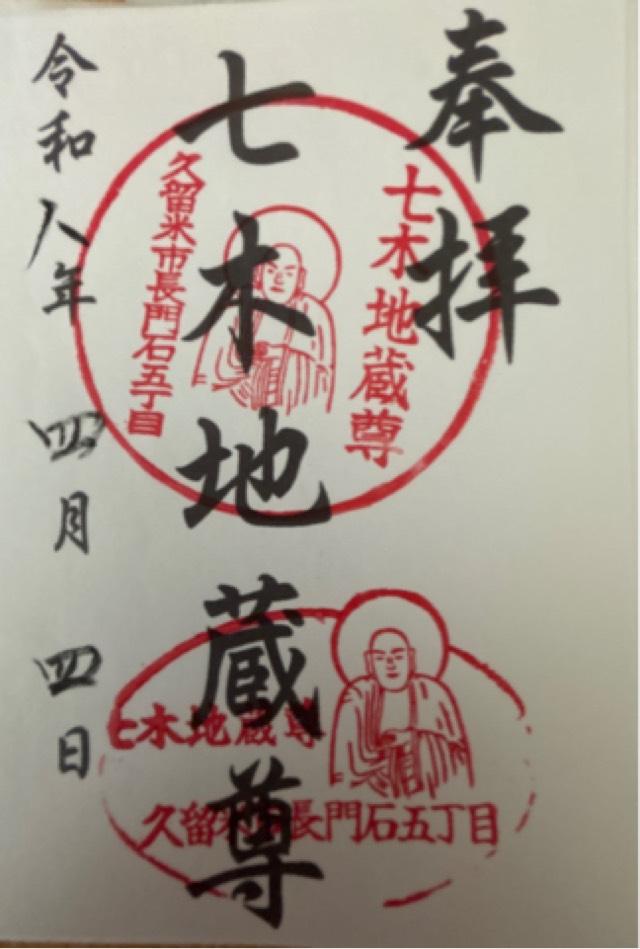 奉拝
七木地蔵尊
令和八年 四月 四日
七木地蔵尊
久留米市長門石五丁目
七木地蔵尊
久留米市長門石五丁目